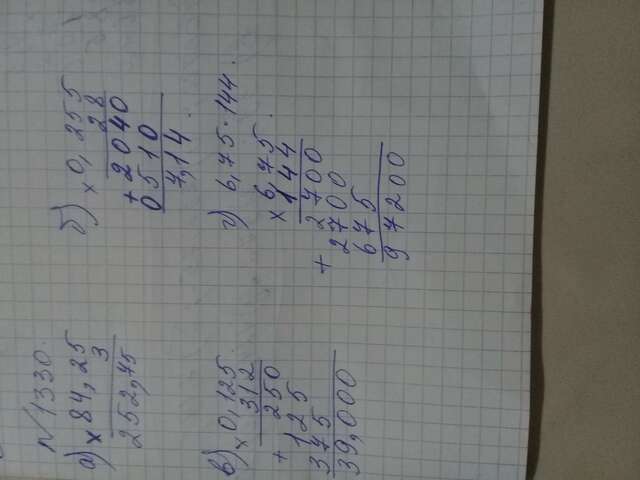 N 1330.
а) × 84,25
3
252,75
б) × 0,255
28
+ 2040
0510
7,14.
в) × 0,125
312
250
+ 125
375
39,000
г) 6,75·144.
× 6,75
144
2700
+ 2700
675
97200